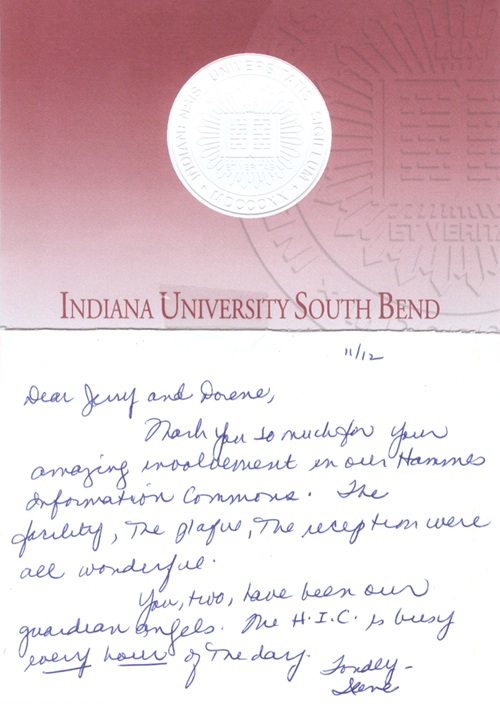 INDIANENSIS UNIVERSITATIS SIGILLUM
MDCCCXX
ET VERITA
INDIANA UNIVERSITY SOUTH BEND
11/12
Dear Jerry and Dorene,
Thank You so much for your
amazing involvement in our Hammes
Information Commons. The
facility, The plaque, The reception were
all wonderful.
You, two, have been our
guardian angels. The H.I.C. is busy
every hour of The day.
Fondly -